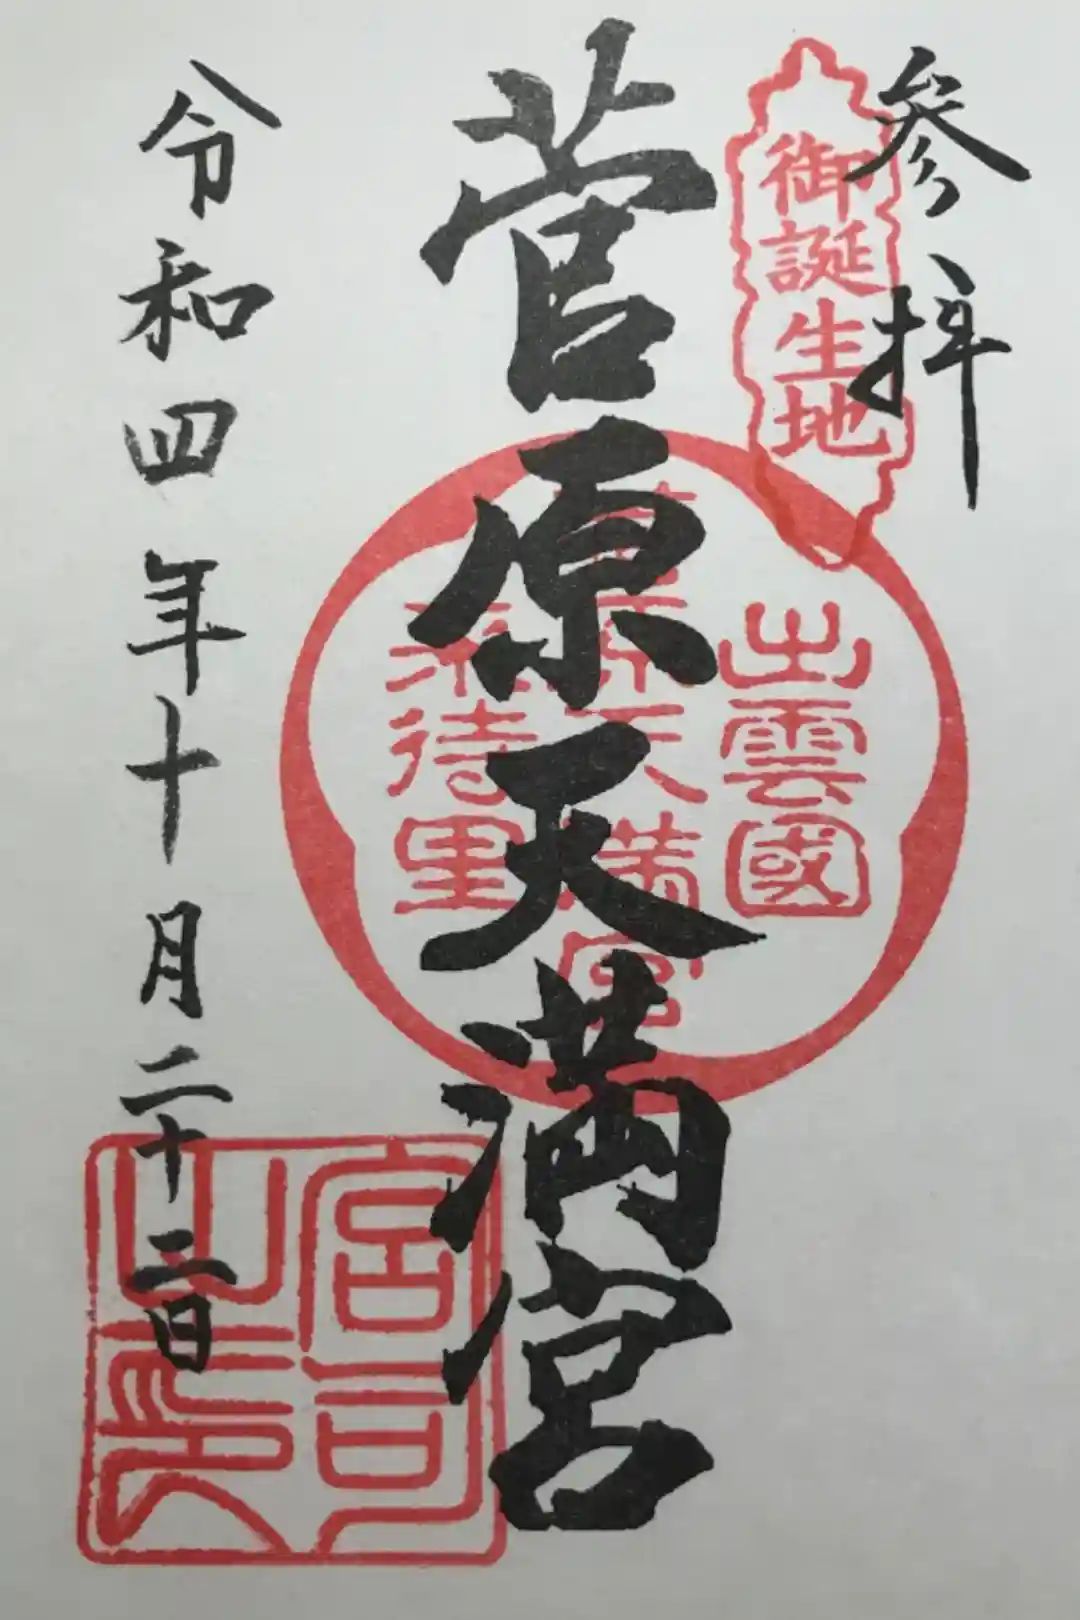 参拝
御誕生地
出雲國
菅原天満宮
来待里
菅原天満宮
宮司之印
令和四年十月二十二日